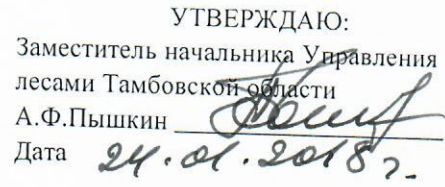 УТВЕРЖДАЮ:
Заместитель начальника Управления
лесами Тамбовской области
А.Ф.Пышкин
Дата 24.01.2018г.